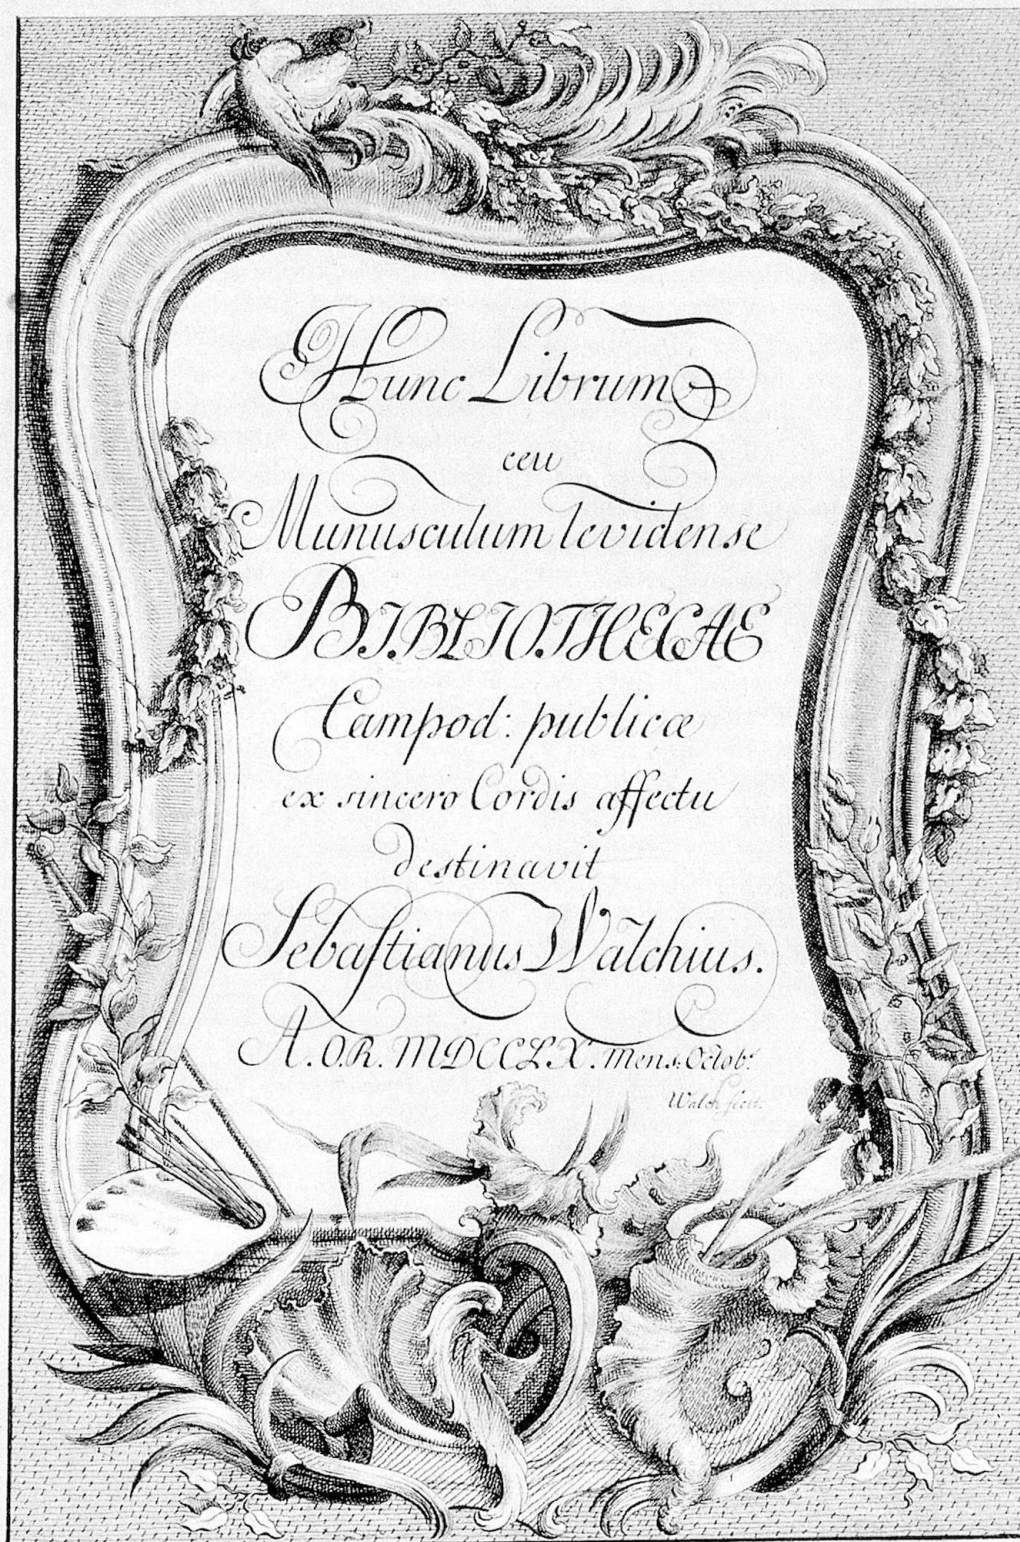 Hunc Librum
ceu
Munusculum levidense
BIBLIOTHECAE
Campod: publicæ
ex sincero Cordis affectu
destinavit
Sebaſtianus Walchius.
A.O.R. MDCCLX. Mens: Octob:
Walch fecit.